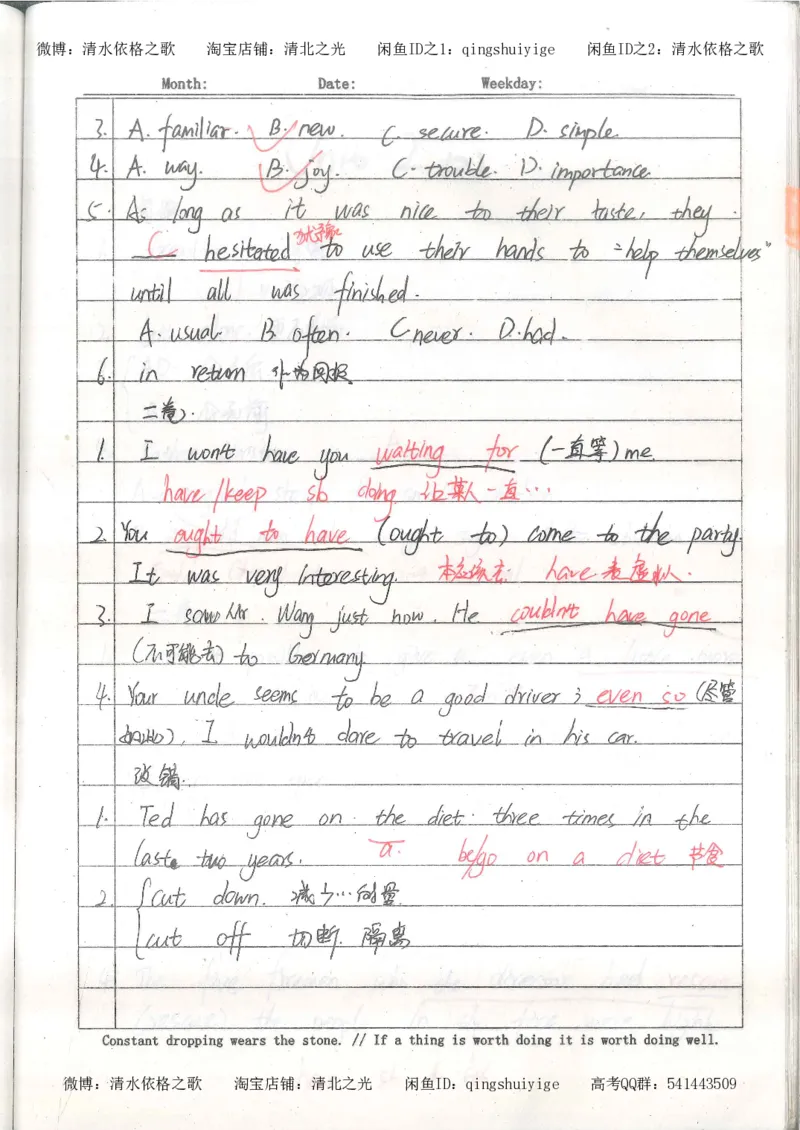 微博：清水依格之歌 淘宝店铺：清北之光 闲鱼ID之1：qingshuiyige 闲鱼ID之2：清水依格之歌
Month: Date: Weekday:
3. A. familiar. B. new. C. secure. D. simple.
4. A. way. B. joy. C. trouble. D. importance.
5. As long as it was nice to their taste, they
C hesitated 犹豫 to use their hands to "help themselves"
until all was finished.
A. usual. B. often. C never. D. had.
6. in return 作为回报
二卷).
1. I won't have you waiting for (一直等) me.
have/keep sb doing 让某人一直…
2. You ought to have (ought to) come to the party.
It was very interesting. 本应该去 have 表虚拟.
3. I saw Mr. Wang just now. He couldn't have gone
(不可能去) to Germany
4. Your uncle seems to be a good driver; even so (尽管
如此), I wouldn't dare to travel in his car.
改错.
1. Ted has gone on the diet three times in the
last two years. a. be/go on a diet 节食
2. cut down. 减少…的量
cut off 切断. 隔离
Constant dropping wears the stone. // If a thing is worth doing it is worth doing well.
微博：清水依格之歌 淘宝店铺：清北之光 闲鱼ID：qingshuiyige 高考QQ群：541443509